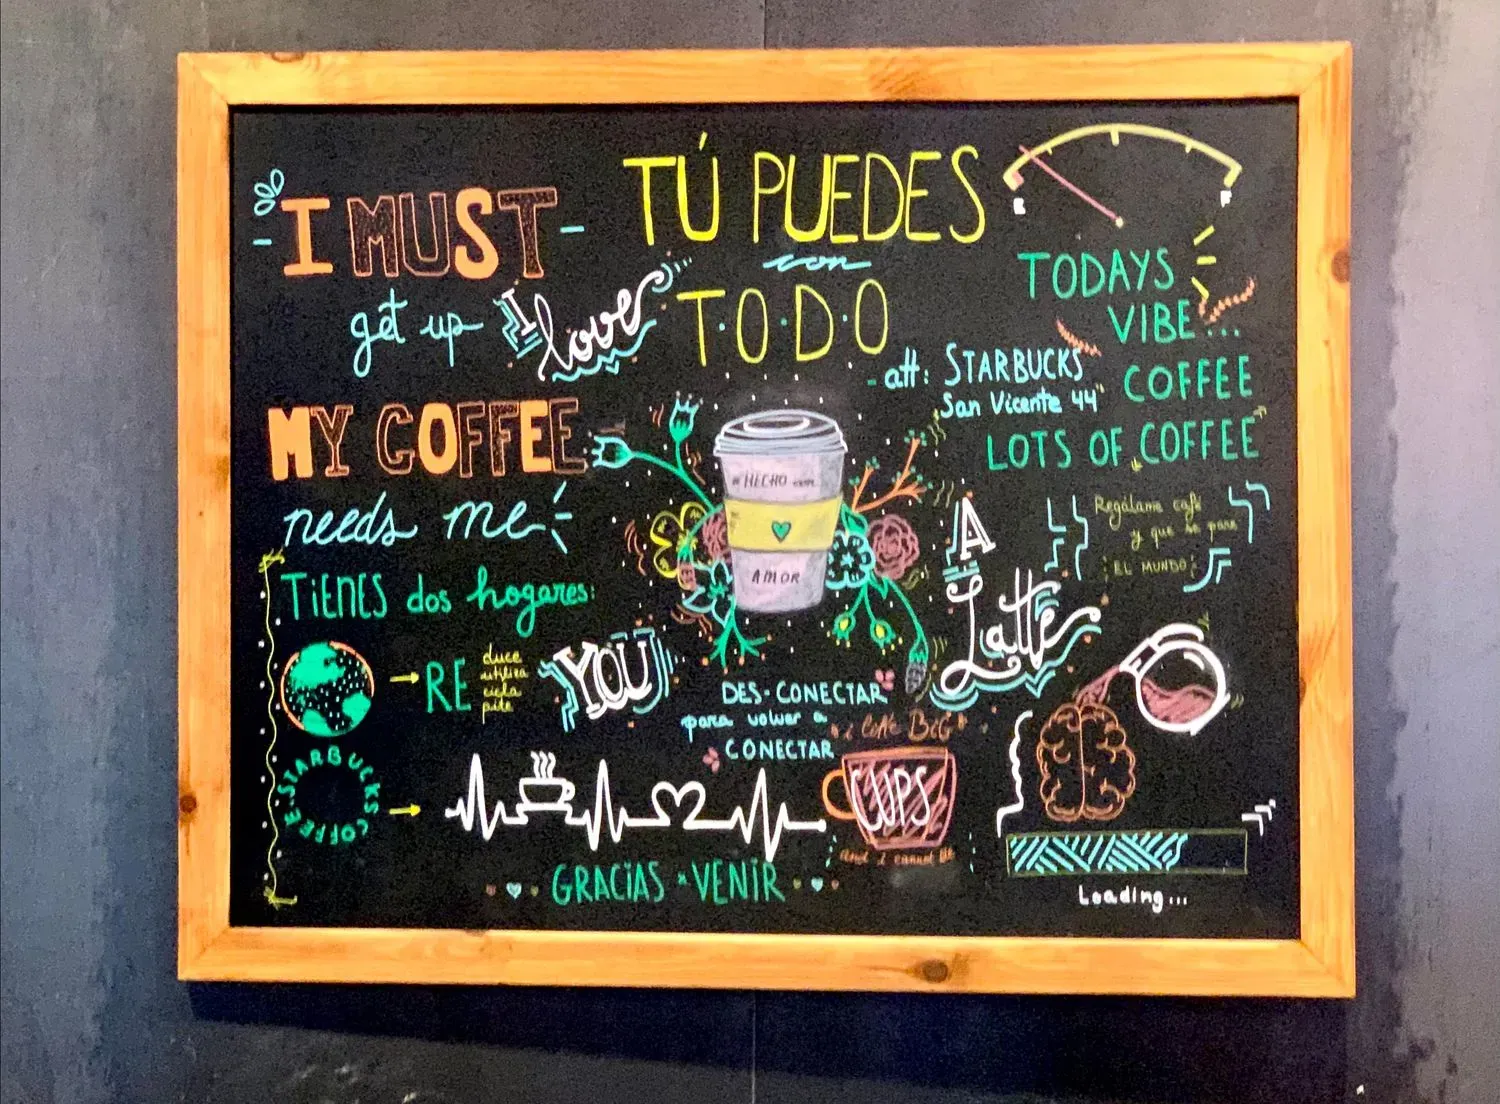 I MUST
get up
MY COFFEE
needs me
TÚ PUEDES
con
T·O·D·O
- att: STARBUCKS
San Vicente 44"
E
F
TODAYS
VIBE...
COFFEE
LOTS OF COFFEE
I
love
YOU
A
Latte
"HECHO con
AMOR
Regálame café
y que se pare
EL MUNDO
TIENES dos hogares:
RE
duce
utiliza
cicla
pide
STARBUCKS COFFEE
DES-CONECTAR
para volver a
CONECTAR
BIG
CUPS
and I cannot lie
GRACIAS x VENIR
Loading...